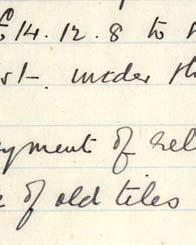 £14.12.8 to
under th
yment of
of old tiles